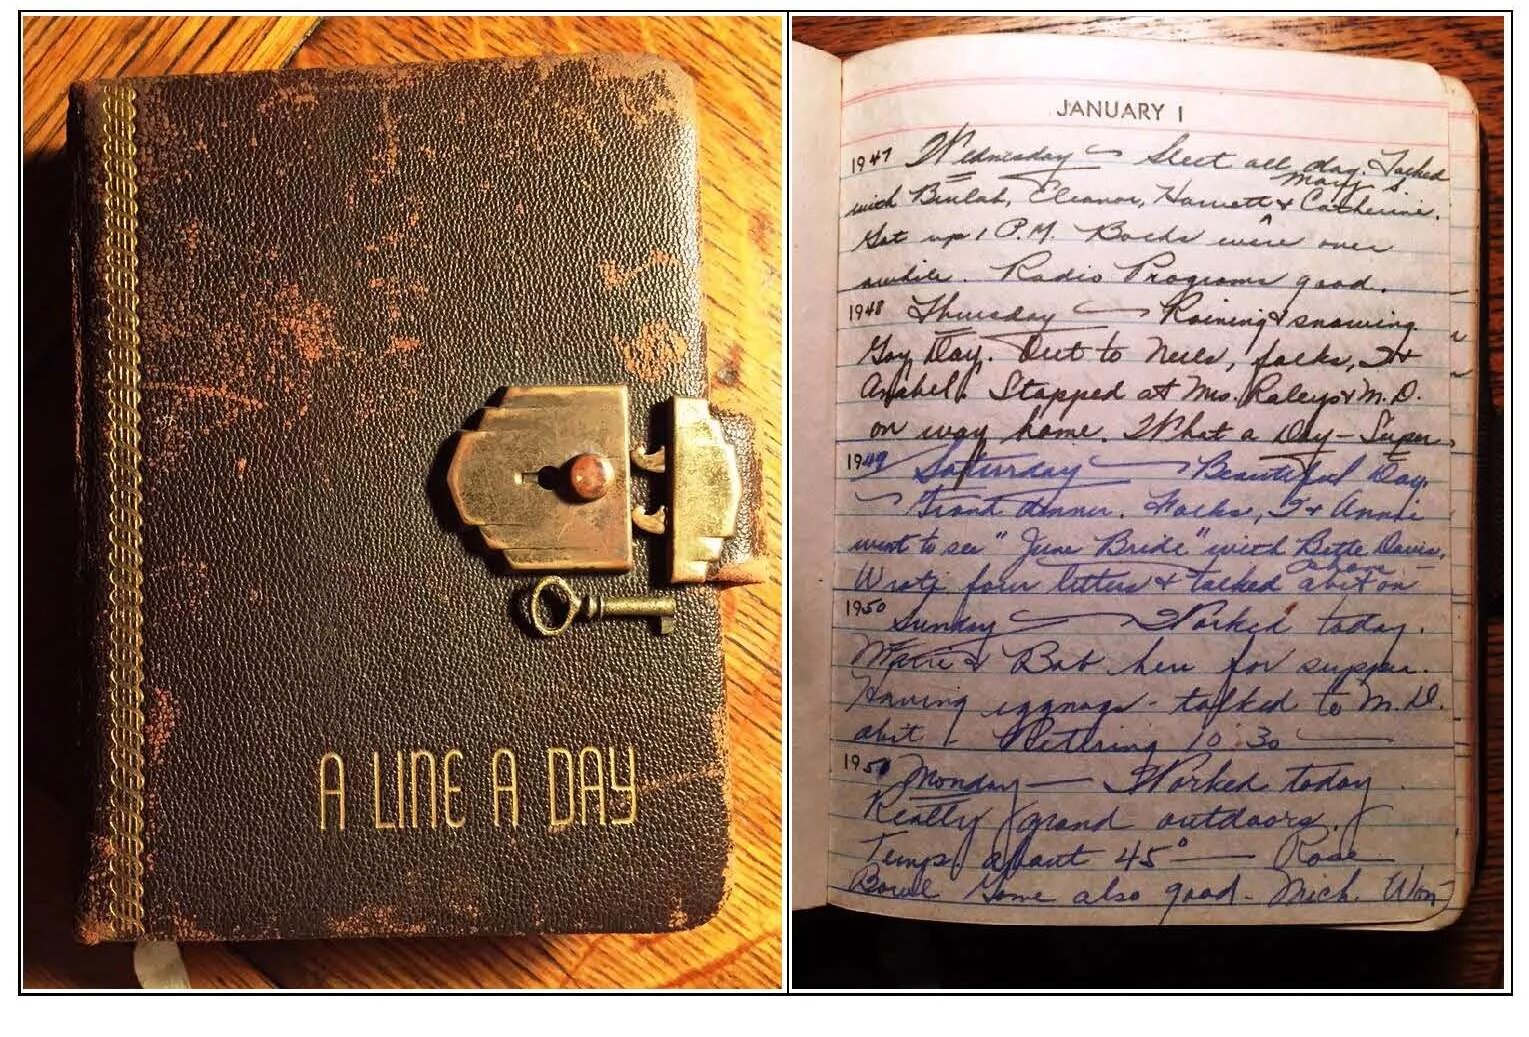 A LINE A DAY
JANUARY 1
1947 Wednesday — Sleet all day. Talked
Mary S.
with Beulah, Eleanor, Harriett & ^ Catherine.
Got up 1 P.M. Boeds were over
awhile. Radio Programs good.
1948 Thursday — Raining & snowing
Gay Day. Out to Neils, Jacks, T &
Anabel. Stopped at Mrs. Raleys & M.D.
on way home. What a Day - Super
1949 Saturday — Beautiful Day.
— Grand dinner. Jacks, T & Annie
went to see "June Bride" with Bette Davis.
Wrote four letters & talked abit on
phone
1950 Sunday — Worked today.
Marie & Bob here for supper.
Having eggnogs - talked to M.D.
abit - Retiring 10:30 —
1951 Monday — Worked today
Really grand outdoors.
Temp. about 45° — Rose
Bowl Game also good - Mich. Won -